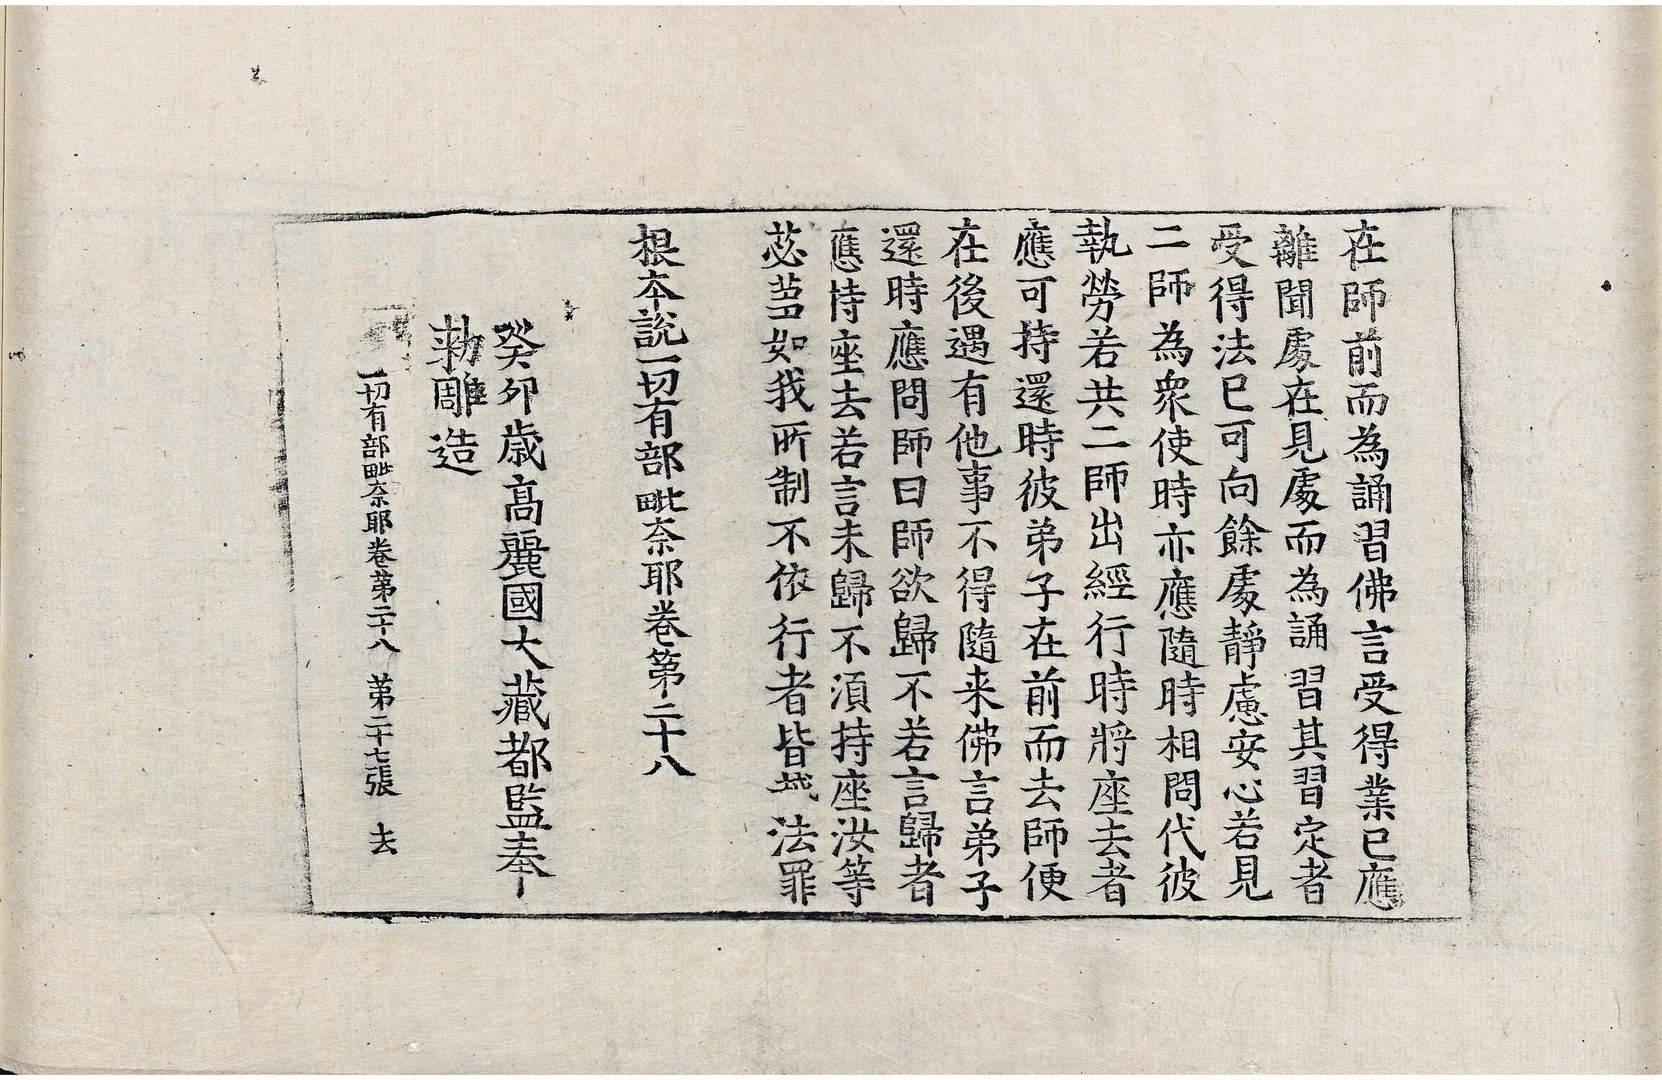 在師前而為誦習佛言受得業已應
離聞處在見處而為誦習其習定者
受得法已可向餘處靜慮安心若見
二師為衆使時亦應隨時相問代彼
執勞若共二師出經行時將座去者
應可持還時彼弟子在前而去師便
在後遇有他事不得隨来佛言弟子
還時應問師曰師欲歸不若言歸者
應持座去若言未歸不湏持座汝等
苾芻如我所制不依行者皆越法罪
根本說一切有部毗奈耶卷第二十八
癸卯歲高麗國大藏都監奉
勅雕造
一切有部毗奈耶卷第二十八 第二十七張 去